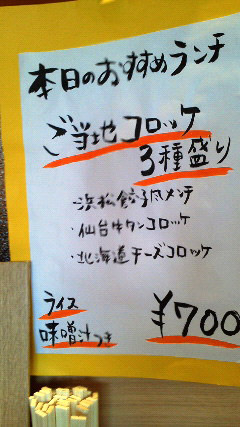 本日のおすすめランチ
ご当地コロッケ
3種盛り
・浜松餃子肉メンチ
・仙台牛タンコロッケ
・北海道チーズコロッケ
ライス
味噌汁つき
¥700